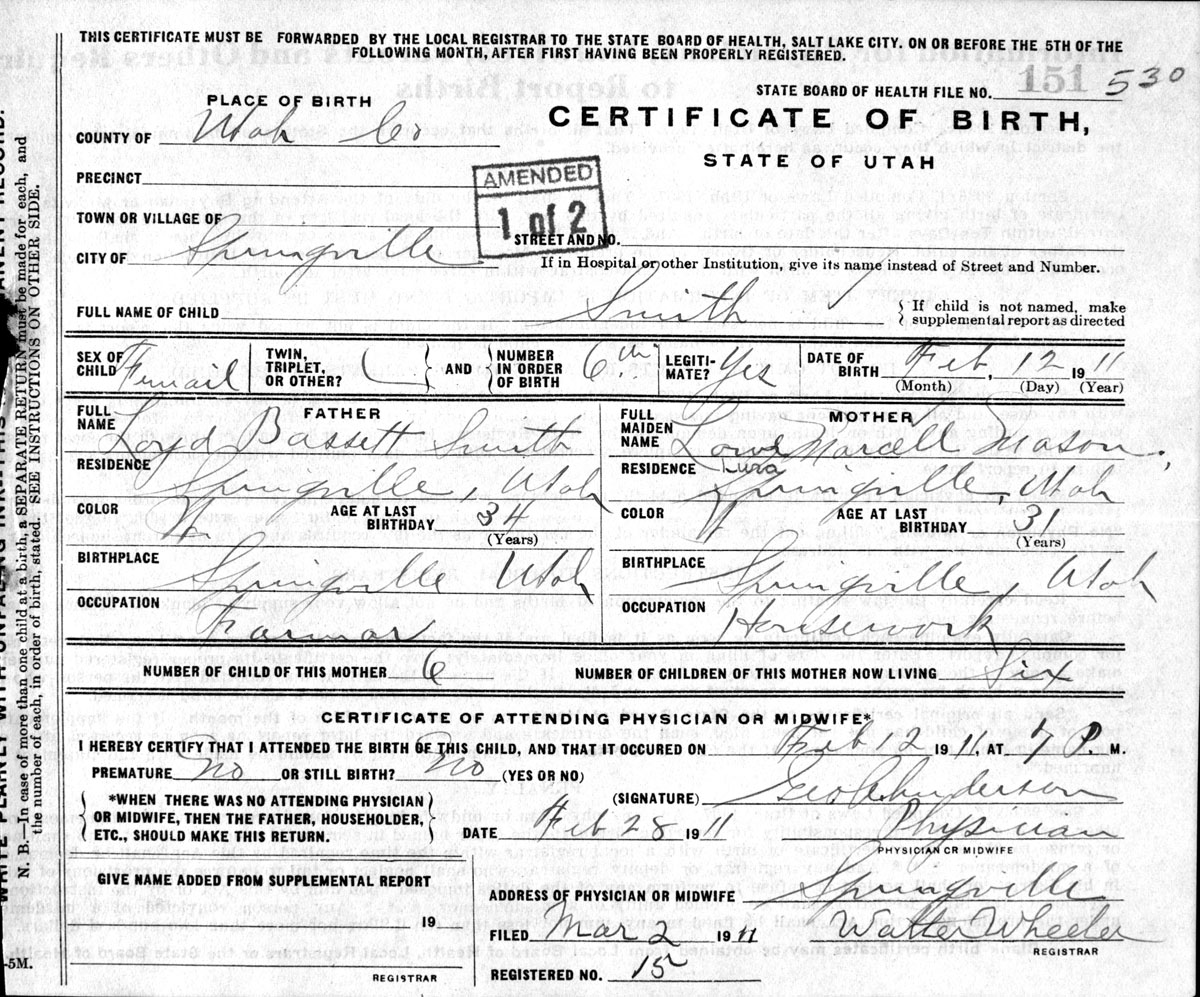 THIS CERTIFICATE MUST BE FORWARDED BY THE LOCAL REGISTRAR TO THE STATE BOARD OF HEALTH, SALT LAKE CITY, ON OR BEFORE THE 5TH OF THE
FOLLOWING MONTH, AFTER FIRST HAVING BEEN PROPERLY REGISTERED.
STATE BOARD OF HEALTH FILE NO. 151 530
PLACE OF BIRTH
CERTIFICATE OF BIRTH,
COUNTY OF Utah Co
STATE OF UTAH
PRECINCT
AMENDED
1 of 2
TOWN OR VILLAGE OF
STREET AND NO.
CITY OF Springville
If in Hospital or other Institution, give its name instead of Street and Number.
FULL NAME OF CHILD Smith
If child is not named, make
supplemental report as directed
SEX OF CHILD Femail TWIN, TRIPLET, OR OTHER? AND NUMBER IN ORDER OF BIRTH 6th LEGITIMATE? Yes DATE OF BIRTH Feb, 12 1911
(Month) (Day) (Year)
FATHER
FULL NAME Loyd Bassett Smith
RESIDENCE Springville, Utah
COLOR W AGE AT LAST BIRTHDAY 34
(Years)
BIRTHPLACE Springville Utah
OCCUPATION Farmar
MOTHER
FULL MAIDEN NAME Marcell Mason
Lura
RESIDENCE Springville, Utah
COLOR W AGE AT LAST BIRTHDAY 31
(Years)
BIRTHPLACE Springville Utah
OCCUPATION Housework
NUMBER OF CHILD OF THIS MOTHER 6 NUMBER OF CHILDREN OF THIS MOTHER NOW LIVING Six
CERTIFICATE OF ATTENDING PHYSICIAN OR MIDWIFE*
I HEREBY CERTIFY THAT I ATTENDED THE BIRTH OF THIS CHILD, AND THAT IT OCCURED ON Feb 2 1911, AT 7 P. M.
PREMATURE No OR STILL BIRTH? No (YES OR NO)
*WHEN THERE WAS NO ATTENDING PHYSICIAN
OR MIDWIFE, THEN THE FATHER, HOUSEHOLDER,
ETC., SHOULD MAKE THIS RETURN.
(SIGNATURE) Geo A. Anderson
DATE Feb 28 1911 Physician
PHYSICIAN OR MIDWIFE
GIVEN NAME ADDED FROM SUPPLEMENTAL REPORT
19
REGISTRAR
ADDRESS OF PHYSICIAN OR MIDWIFE Springville
FILED Mar 2 1911 Walter Wheeler
REGISTRAR
REGISTERED NO. 15
N. B.—In case of more than one child at a birth, a SEPARATE RETURN must be made for each, and
the number of each, in order of birth, stated. SEE INSTRUCTIONS ON OTHER SIDE.
-5M.